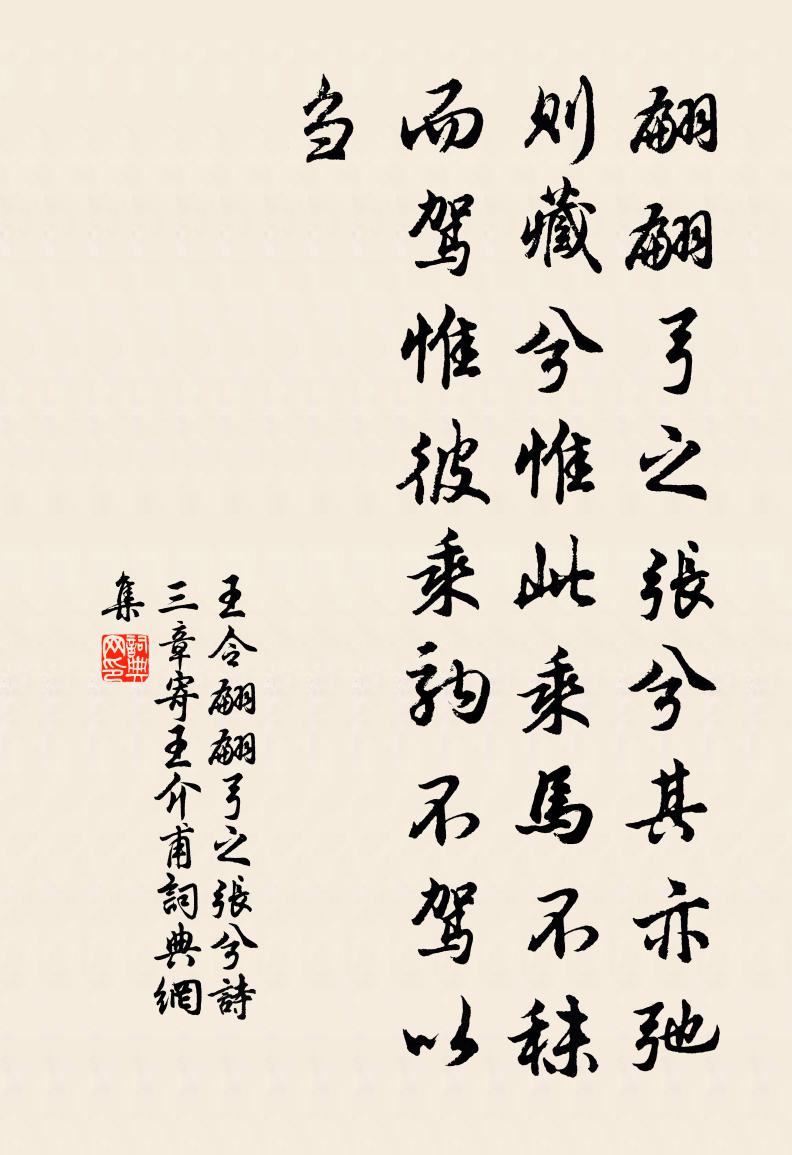 翩翩弓之張兮其亦弛
則藏兮惟此乘馬不秣
而駕惟彼乘駒不駕以
刍
王令翩翩弓之張兮詩
三章寄王介甫詞典網
集
詞典
网印